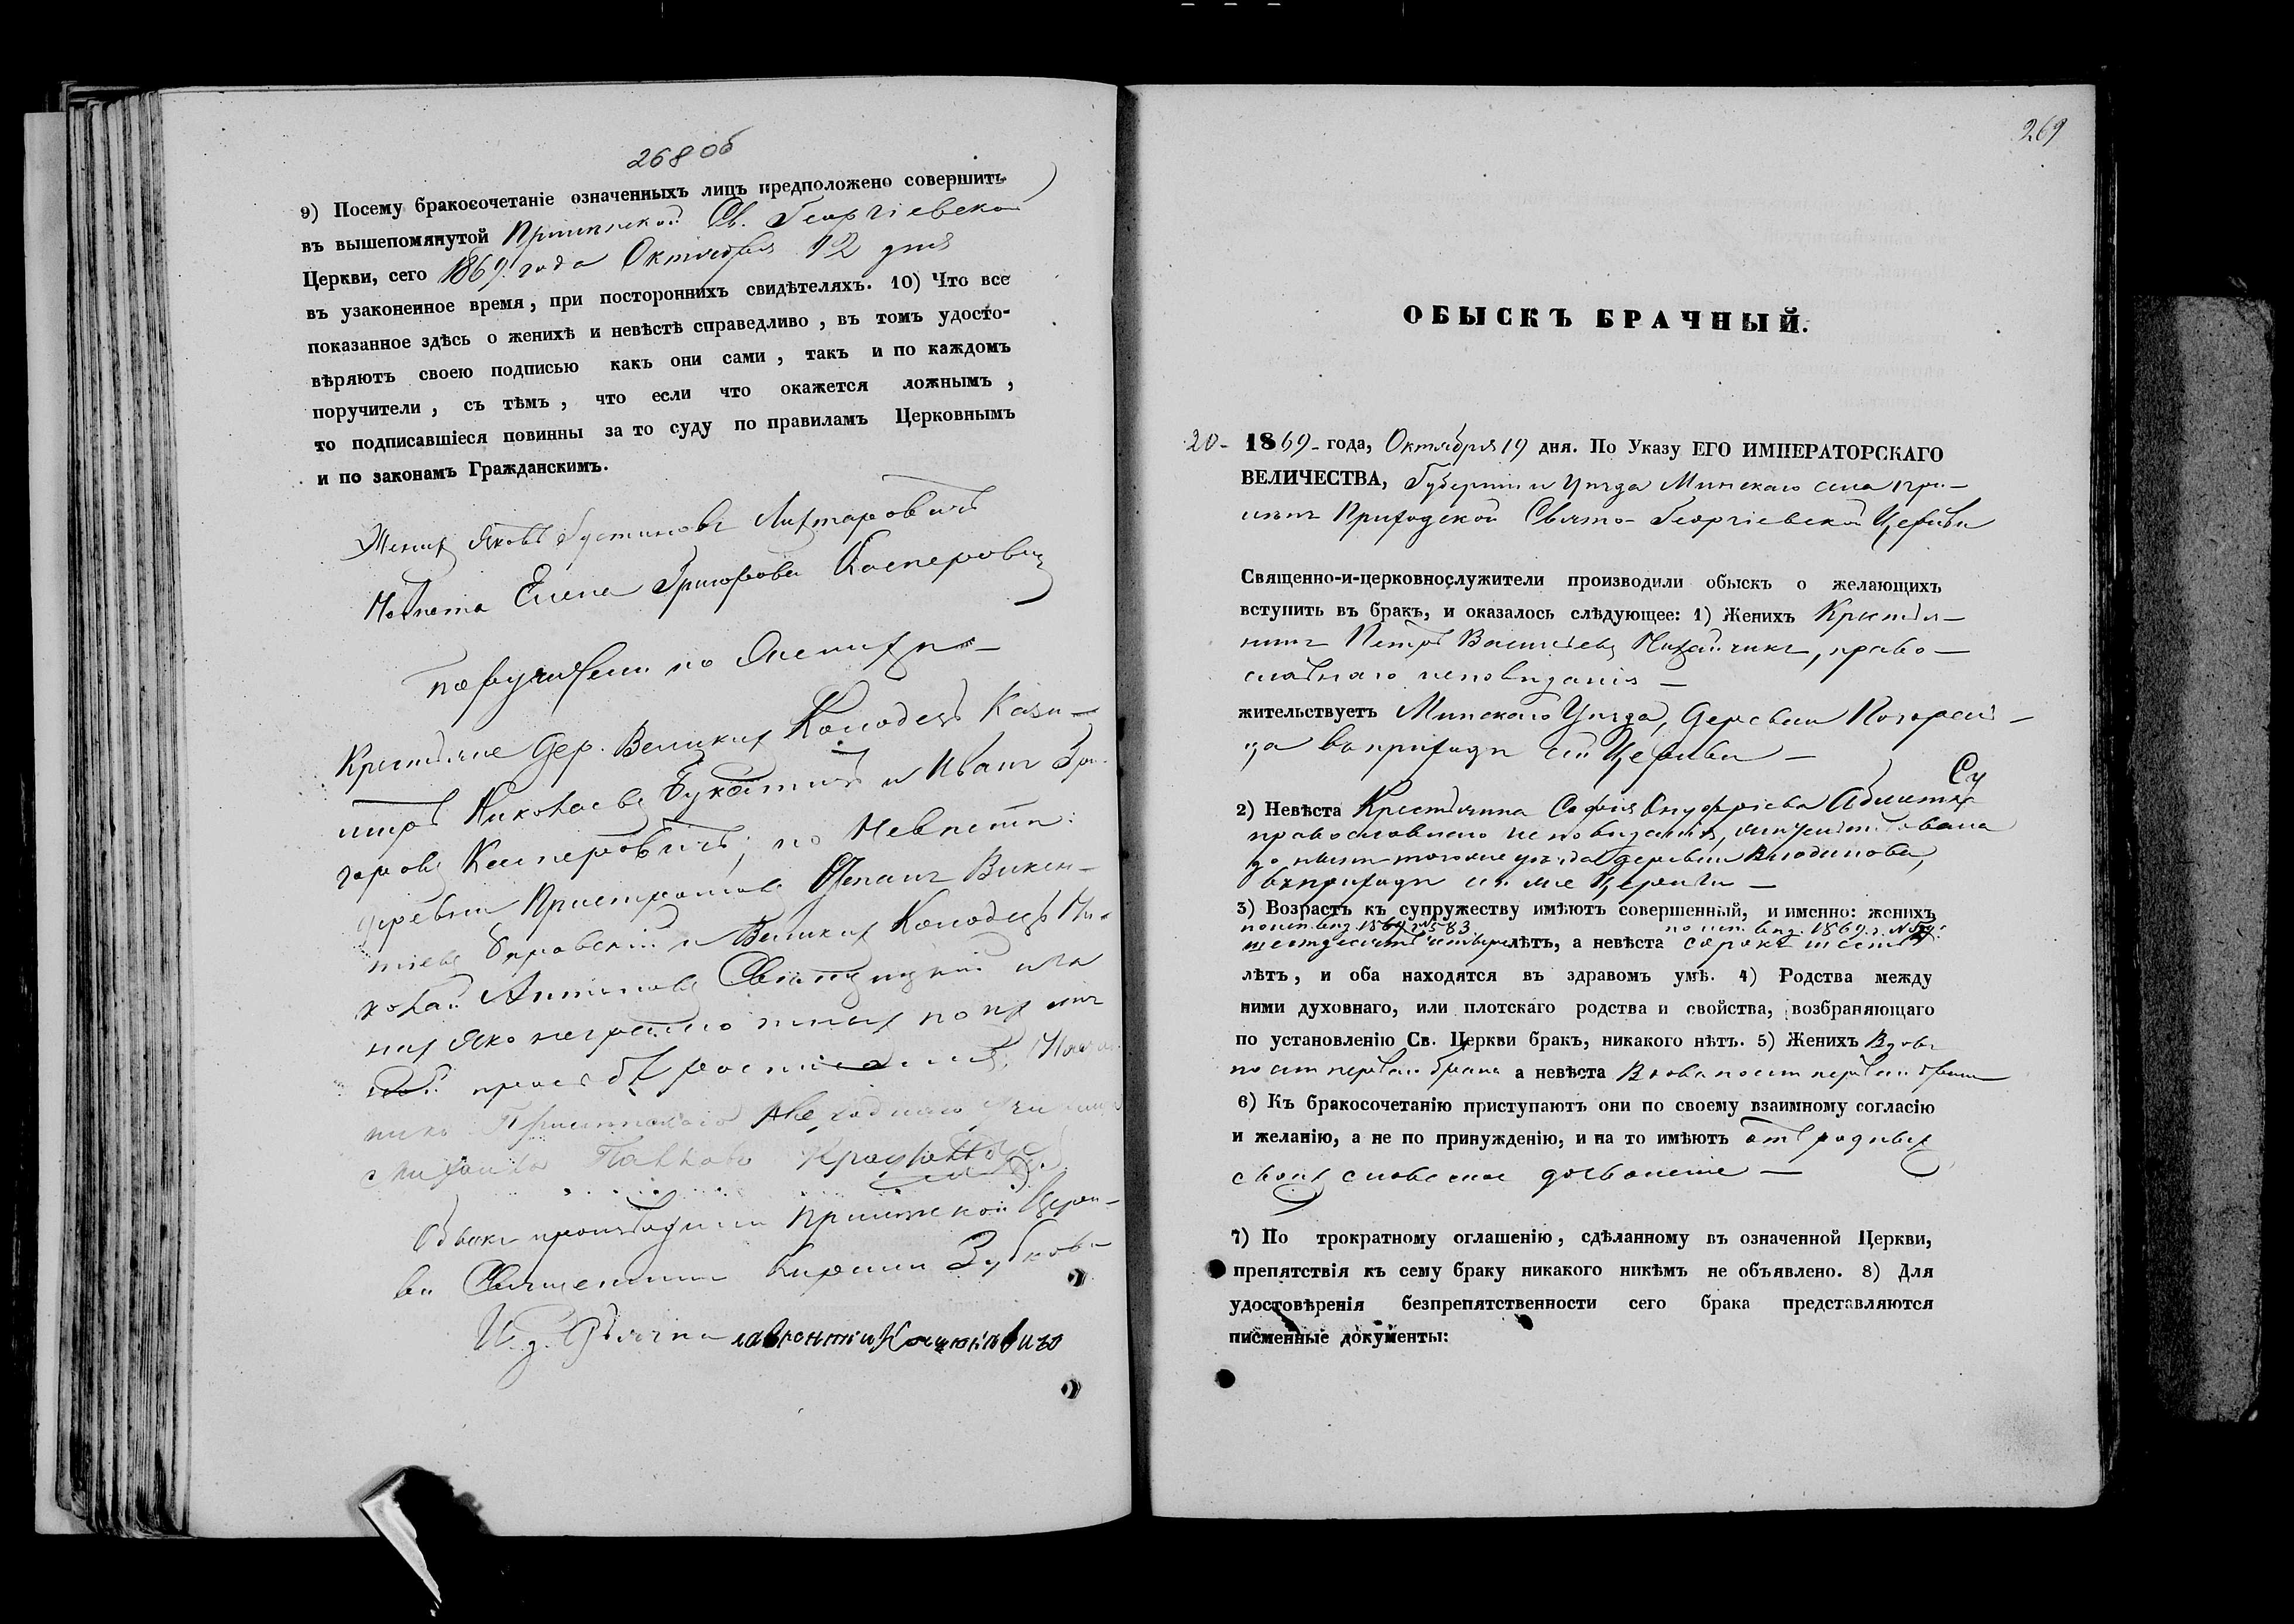 268 об
9) Посему бракосочетаніе означенныхъ лицъ предположено совершить
въ вышепомянутой Св. Георгіевской
Церкви, сего 1869 года Октября 12 дня
въ узаконенное время, при постороннихъ свидѣтеляхъ. 10) Что все
показанное здѣсь о женихѣ и невѣстѣ справедливо, въ томъ удосто-
вѣряютъ своею подписью какъ они сами, такъ и по каждомъ
поручители, съ тѣмъ, что если что окажется ложнымъ,
то подписавшіеся повинны за то суду по правиламъ Церковнымъ
и по законамъ Гражданскимъ.
Женихъ Яковъ Устиновъ Лихтаровичъ
Невѣста Елена Григорова Касперовичъ
Поручители по Женихѣ
Крестьяне Дер. Великихъ Колодезъ Кази-
миръ Николаевъ и Иванъ Гри-
горовъ Касперовичъ; по Невѣстѣ:
деревни Степанъ Викен-
тіевъ и Великихъ Колодезъ Ни-
колай Антоновъ а за
нихъ яко неграмотныхъ по ихъ лич
ной просьбѣ
Народнаго
Михаила Павлова
Обыскъ производили Церк-
ви Священникъ Кириллъ
И. д. Дьячка Лаврентій
269
ОБЫСКЪ БРАЧНЫЙ.
20- 1869- года, Октября 19 дня. По Указу ЕГО ИМПЕРАТОРСКАГО
ВЕЛИЧЕСТВА, Губерніи и Уѣзда Минскаго села При-
Приходской Свято-Георгіевской Церкви
Священно-и-церковнослужители производили обыскъ о желающихъ
вступить въ бракъ, и оказалось слѣдующее: 1) Женихъ Крестья-
нинъ Петръ Васильевъ право-
славнаго исповѣданія
жительствуетъ Минскаго Уѣзда, деревни
въ приходѣ сей Церкви
2) Невѣста Крестьянка Софія Онуфріева
православнаго исповѣданія, жительствовала
до нынѣ того же уѣзда деревни
въ приходѣ сей же Церкви
3) Возрастъ къ супружеству имѣютъ совершенный, и именно: женихъ
по исп. вѣд. 1869 № 83 по исп. вѣд. 1869 г. №
шестьдесятъ четыре лѣтъ, а невѣста сорокъ шесть
лѣтъ, и оба находятся въ здравомъ умѣ. 4) Родства между
ними духовнаго, или плотскаго родства и свойства, возбраняющаго
по установленію Св. Церкви бракъ, никакого нѣтъ. 5) Женихъ Вдовъ
послѣ перваго брака а невѣста Вдова послѣ перваго брака
6) Къ бракосочетанію приступаютъ они по своему взаимному согласію
и желанію, а не по принужденію, и на то имѣютъ отъ родныхъ
своихъ словесное дозволеніе
7) По трократному оглашенію, сдѣланному въ означенной Церкви,
препятствія къ сему браку никакого никѣмъ не объявлено. 8) Для
удостовѣренія безпрепятственности сего брака представляются
писменные документы: